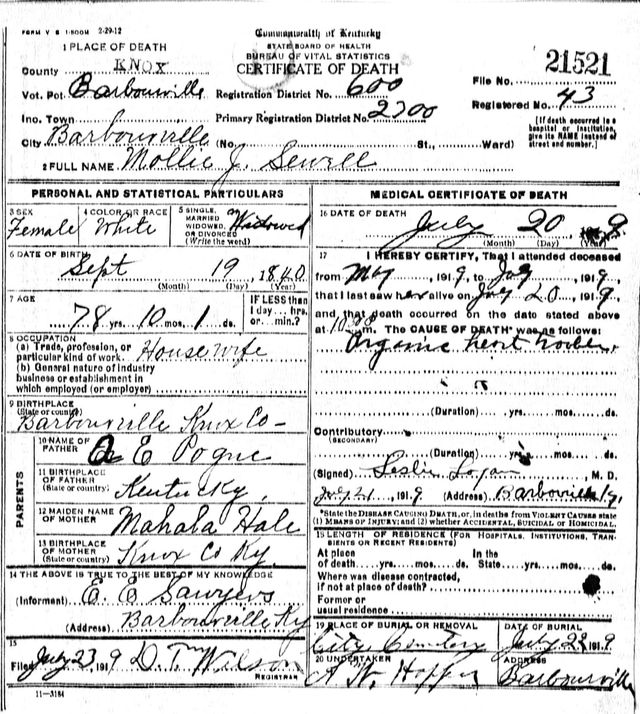 FORM V S 1-500M 2-29-12
Commonwealth of Kentucky
STATE BOARD OF HEALTH
BUREAU OF VITAL STATISTICS
CERTIFICATE OF DEATH
1 PLACE OF DEATH
County KNOX
Vot. Pct. Barbourville
Inc. Town
City Barbourville (No. St., Ward)
Registration District No. 600
Primary Registration District No. 2700
21521
File No.
Registered No. 43
[If death occurred in a hospital or institution, give its NAME instead of street and number.]
2 FULL NAME Mollie J. Sewell
PERSONAL AND STATISTICAL PARTICULARS
3 SEX Female
4 COLOR OR RACE White
5 SINGLE, MARRIED WIDOWED, OR DIVORCED (Write the word) Widowed
6 DATE OF BIRTH Sept 19 1840
(Month) (Day) (Year)
7 AGE 78 yrs. 10 mos. 1 ds.
IF LESS than 1 day... hrs. or... min.?
8 OCCUPATION
(a) Trade, profession, or particular kind of work House wife
(b) General nature of industry business or establishment in which employed (or employer)
9 BIRTHPLACE (State or county) Barbourville Knox Co
PARENTS
10 NAME OF FATHER E Pogue
11 BIRTHPLACE OF FATHER (State or county) Kentucky
12 MAIDEN NAME OF MOTHER Mahala Hale
13 BIRTHPLACE OF MOTHER (State or county) Knox Co Ky.
14 THE ABOVE IS TRUE TO THE BEST OF MY KNOWLEDGE
(Informant) E. E. Sawyers
(Address) Barbourville Ky
15
Filed July 23 1919 D. T. Wilson
REGISTRAR
11-3184
MEDICAL CERTIFICATE OF DEATH
16 DATE OF DEATH July 20 9
(Month) (Day) (Year)
17 I HEREBY CERTIFY, That I attended deceased
from May, 1919, to July, 1919,
that I last saw her alive on July 20, 1919
and that death occurred on the date stated above
at 10 m. The CAUSE OF DEATH* was as follows:
Organic heart trouble.
(Duration) yrs. mos. ds.
Contributory
(SECONDARY)
(Duration) yrs. mos. ds.
(Signed) Leslie Logan, M. D.
July 21, 1919 (Address) Barbourville Ky.
*State the DISEASE CAUSING DEATH, or, in deaths from VIOLENT CAUSES state
(1) MEANS OF INJURY; and (2) whether ACCIDENTAL, SUICIDAL or HOMICIDAL.
18 LENGTH OF RESIDENCE (FOR HOSPITALS, INSTITUTIONS, TRANSIENTS OR RECENT RESIDENTS)
At place of death yrs. mos. ds. In the State yrs. mos. ds.
Where was disease contracted, if not at place of death?
Former or usual residence
19 PLACE OF BURIAL OR REMOVAL City Cemetery
DATE OF BURIAL July 1919
20 UNDERTAKER A W Hopper
ADDRESS Barbourville